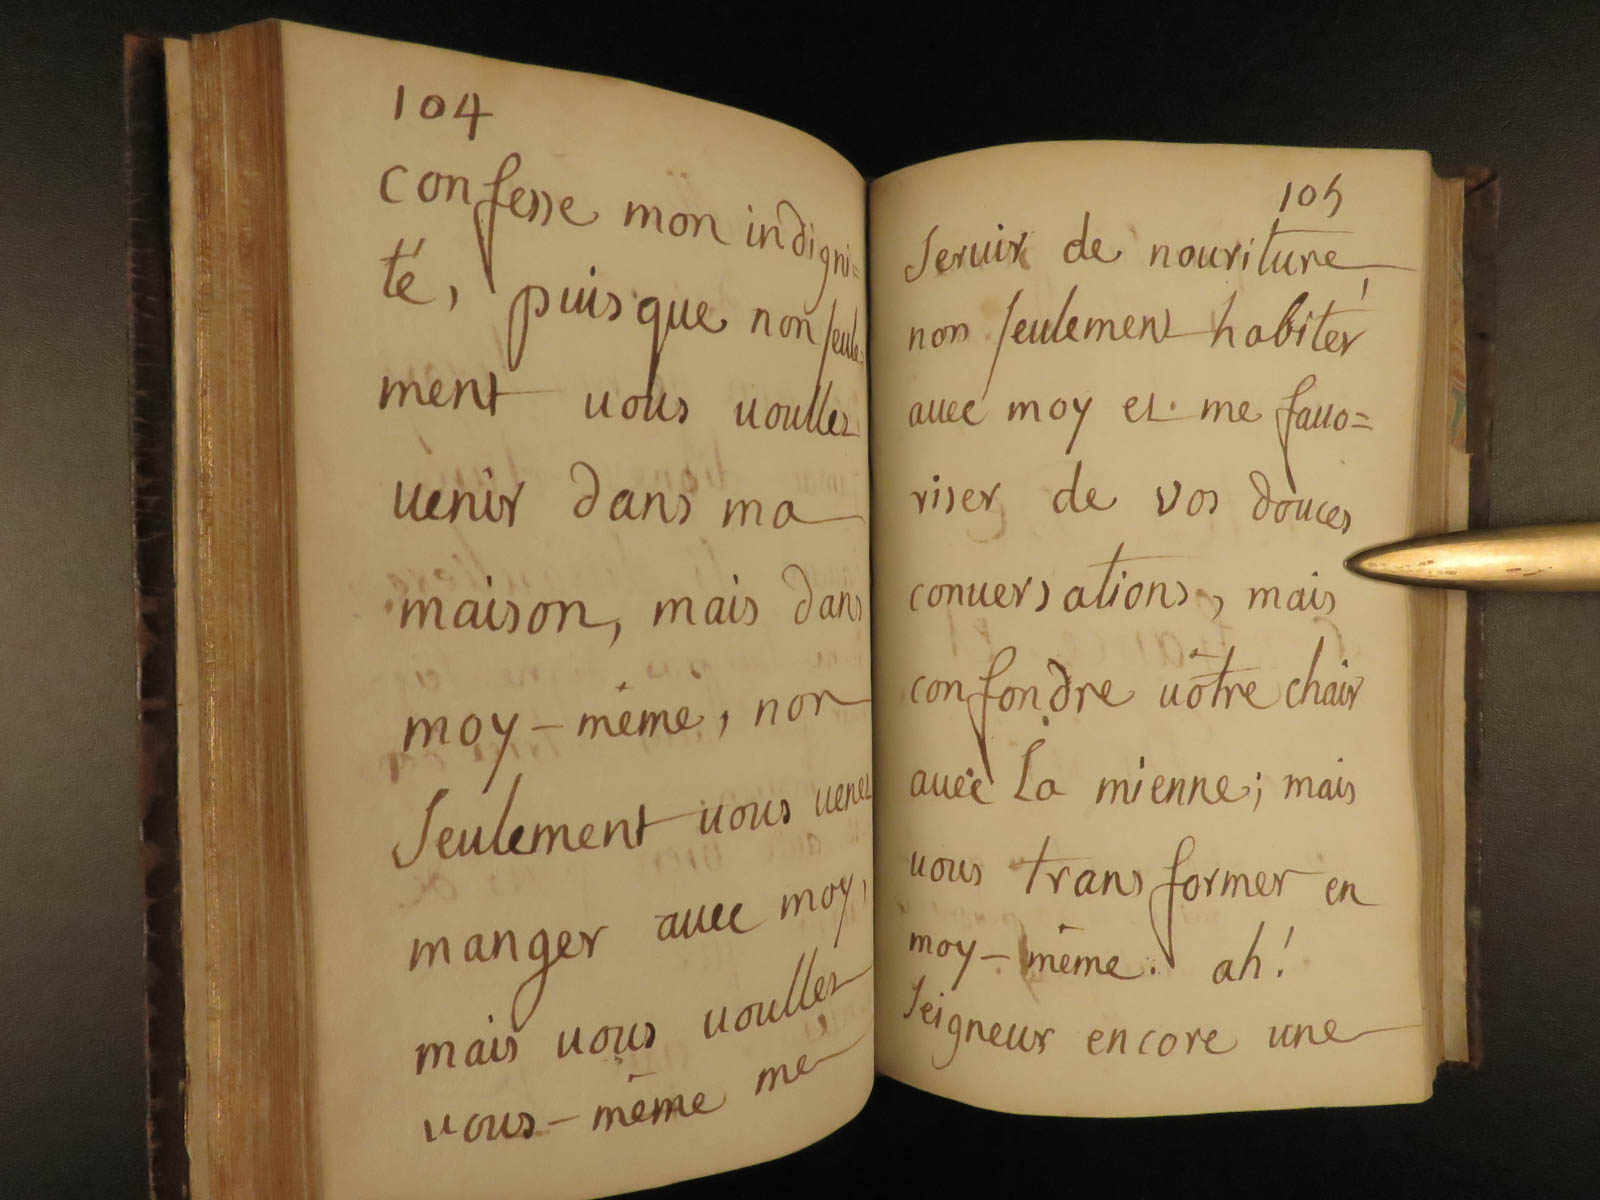 104
confesse mon indigni=
té, puisque non seule=
ment uous uoullez
uenir dans ma
maison, mais dans
moy-même, non
seulement uous uenez
manger auec moy,
mais uous uoullez
vous-même me
105
seruir de nouriture,
non seulement habiter
auec moy et me fauo=
riser de vos douces
conuersations, mais
confondre uôtre chair
auec La mienne; mais
uous transformer en
moy-même. ah!
seigneur encore une